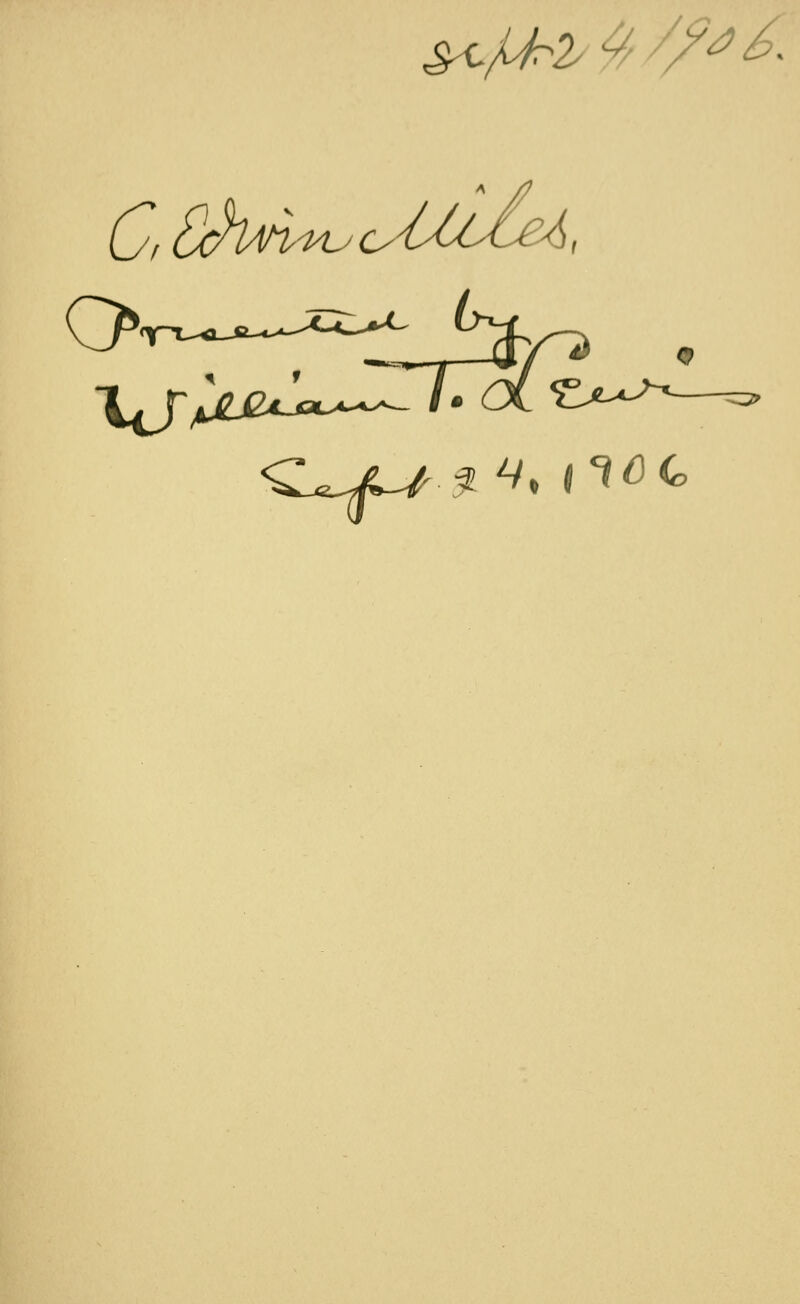 Sept 24 1906.
C. Edwin Miles,
Presented by
William T. Lewis
Sept 24, 1906